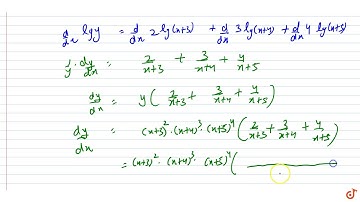 d/dx lg y = d/dx 2 lg(x+3) + d/dx 3 lg(x+4) + d/dx 4 lg(x+5)
1/y · dy/dx = 2/x+3 + 3/x+4 + 4/x+5
dy/dx = y ( 2/x+3 + 3/x+4 + 4/x+5 )
dy/dx = (x+3)² · (x+4)³ · (x+5)⁴ ( 2/x+3 + 3/x+4 + 4/x+5 )
= (x+3)² · (x+4)³ · (x+5)⁴ (